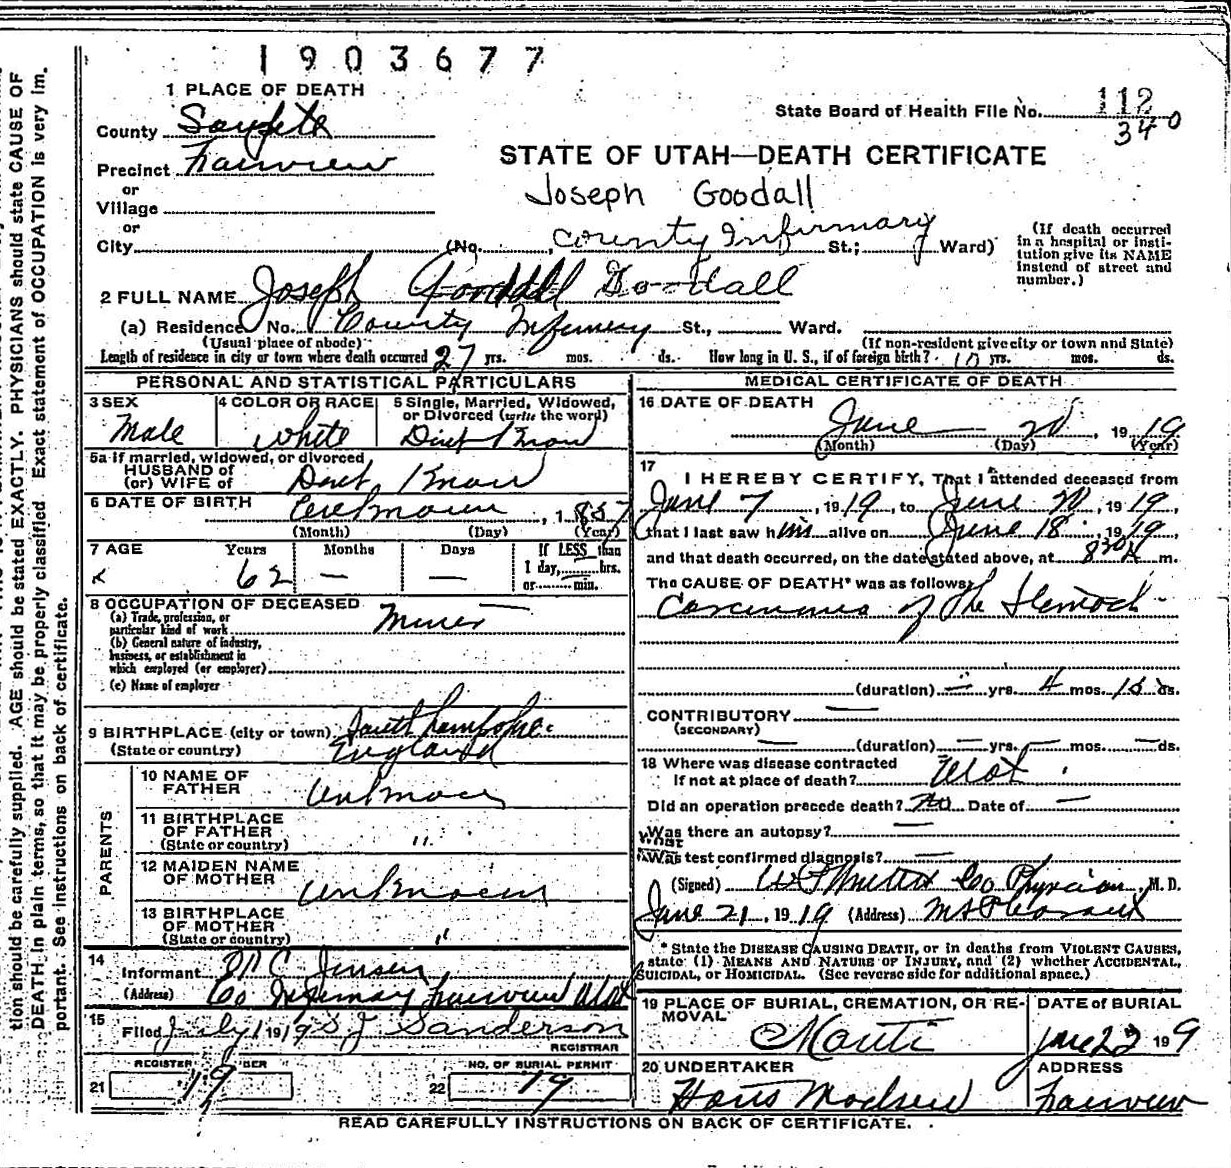 1903677
1 PLACE OF DEATH
State Board of Health File No. 112
340
County
Precinct Fairview
STATE OF UTAH—DEATH CERTIFICATE
or
Village
Joseph Goodall
or
City (No. County Infirmary St.; Ward)
(If death occurred
in a hospital or insti-
tution give its NAME
instead of street and
number.)
2 FULL NAME Joseph Goodall Goodall
(a) Residence No. County Infirmary St., Ward.
(Usual place of abode) (If non-resident give city or town and State)
Length of residence in city or town where death occurred 27 yrs. mos. ds. How long in U. S., if of foreign birth? yrs. mos. ds.
PERSONAL AND STATISTICAL PARTICULARS
3 SEX 4 COLOR OR RACE 5 Single, Married, Widowed,
or Divorced (write the word)
Male White Dont Know
5a If married, widowed, or divorced
HUSBAND of
(or) WIFE of Dont Know
6 DATE OF BIRTH Unknown, 1857
(Month) (Day) (Year)
7 AGE Years Months Days If LESS than
1 day, hrs.
62 — — or min.
8 OCCUPATION OF DECEASED
(a) Trade, profession, or
particular kind of work Miner
(b) General nature of industry,
business, or establishment in
which employed (or employer)
(c) Name of employer
9 BIRTHPLACE (city or town)
(State or country) England
PARENTS
10 NAME OF
FATHER Unknown
11 BIRTHPLACE
OF FATHER
(State or country) "
12 MAIDEN NAME
OF MOTHER Unknown
13 BIRTHPLACE
OF MOTHER
(State or country) "
14
Informant Jensen
(Address) Co Infirmary Fairview Utah
15
Filed July 1 1919 S J Sanderson
REGISTRAR
REGISTER NUMBER NO. OF BURIAL PERMIT
21 19 22 19
MEDICAL CERTIFICATE OF DEATH
16 DATE OF DEATH
June 20, 1919
(Month) (Day) (Year)
17
I HEREBY CERTIFY, That I attended deceased from
June 7, 1919, to June 20, 1919,
that I last saw him alive on June 18, 1919,
and that death occurred, on the date stated above, at 830 m.
The CAUSE OF DEATH* was as follows:
Carcinoma of the Stomach
(duration) — yrs. 4 mos. 15 ds.
CONTRIBUTORY —
(SECONDARY)
— (duration) — yrs. — mos. — ds.
18 Where was disease contracted
If not at place of death? Utah.
Did an operation precede death? No Date of —
Was there an autopsy? —
What
Was test confirmed diagnosis? —
(Signed) Co Physician, M. D.
June 21, 1919 (Address) Mt Pleasant
* State the DISEASE CAUSING DEATH, or in deaths from VIOLENT CAUSES,
state (1) MEANS AND NATURE OF INJURY, and (2) whether ACCIDENTAL,
SUICIDAL, or HOMICIDAL. (See reverse side for additional space.)
19 PLACE OF BURIAL, CREMATION, OR RE-
MOVAL
DATE of BURIAL
Manti June 22 1919
20 UNDERTAKER ADDRESS
Hans Madsen Fairview
READ CAREFULLY INSTRUCTIONS ON BACK OF CERTIFICATE.
tion should be carefully supplied. AGE should be stated EXACTLY. PHYSICIANS should state CAUSE OF
DEATH in plain terms, so that it may be properly classified. Exact statement of OCCUPATION is very im-
portant. See instructions on back of certificate.